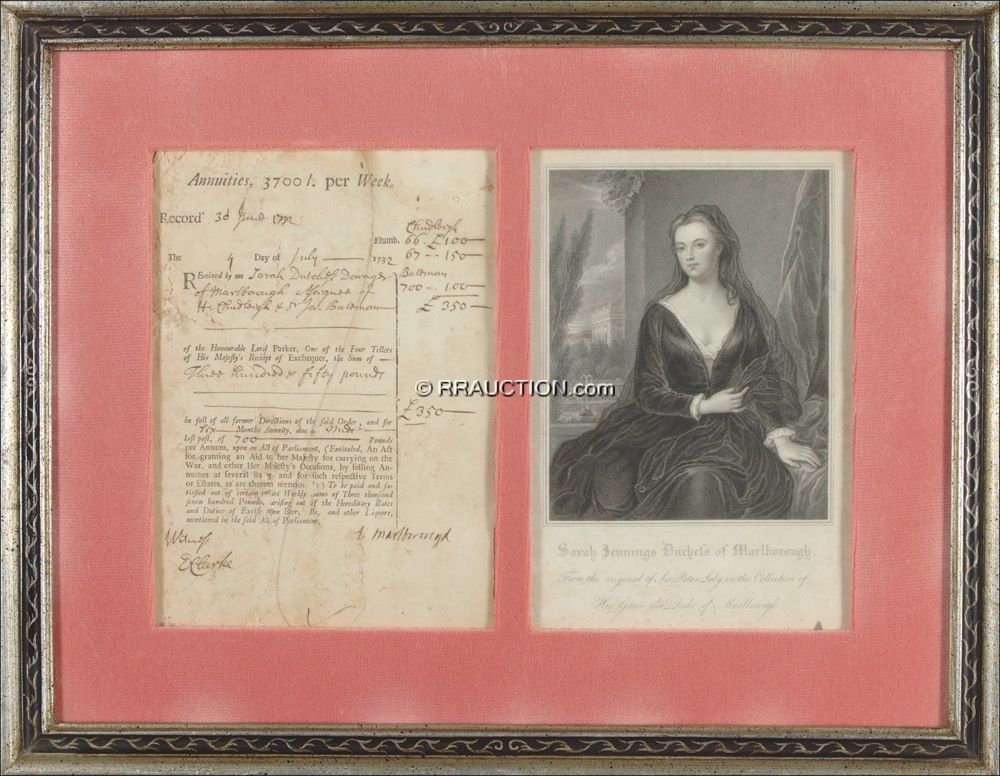 Annuities, 3700 l. per Week
Record 3d June 1732
Chudleigh
Numb. 66 - £100
67 - - 150
The 4 Day of July 1732
Bateman
700 - - 100
£ 350
Received by me Sarah Dutchess Dowager
of Marlborough Assignee of
H. Chudleigh & Sr Jas. Bateman
of the Honourable Lord Parker, One of the Four Tellers
of His Majesty's Receipt of Exchequer, the Sum of
Three hundred & fifty pounds
£350
in full of all former Directions of the said Order, and for
Six Months Annuity, due at
last past, of 700 Pounds
per Annum, upon an Act of Parliament, (Entituled, An Act
for granting an Aid to her Majesty for carrying on the
War, and other Her Majesty's Occasions, by selling An-
nuities at several Rates, and for such respective Terms
or Estates, as are therein mention'd:) To be paid and sa-
tisfied out of certain entire Weekly Sums of Three thousand
seven hundred Pounds, arising out of the Hereditary Rates
and Duties of Excise upon Beer, Ale, and other Liquors,
mentioned in the said Act of Parliament.
Witness
S Marlborough
E Clarke
© RRAUCTION.com
Sarah Jennings Duchess of Marlborough.
From the original of Sir Peter Lely in the Collection of
His Grace the Duke of Marlborough